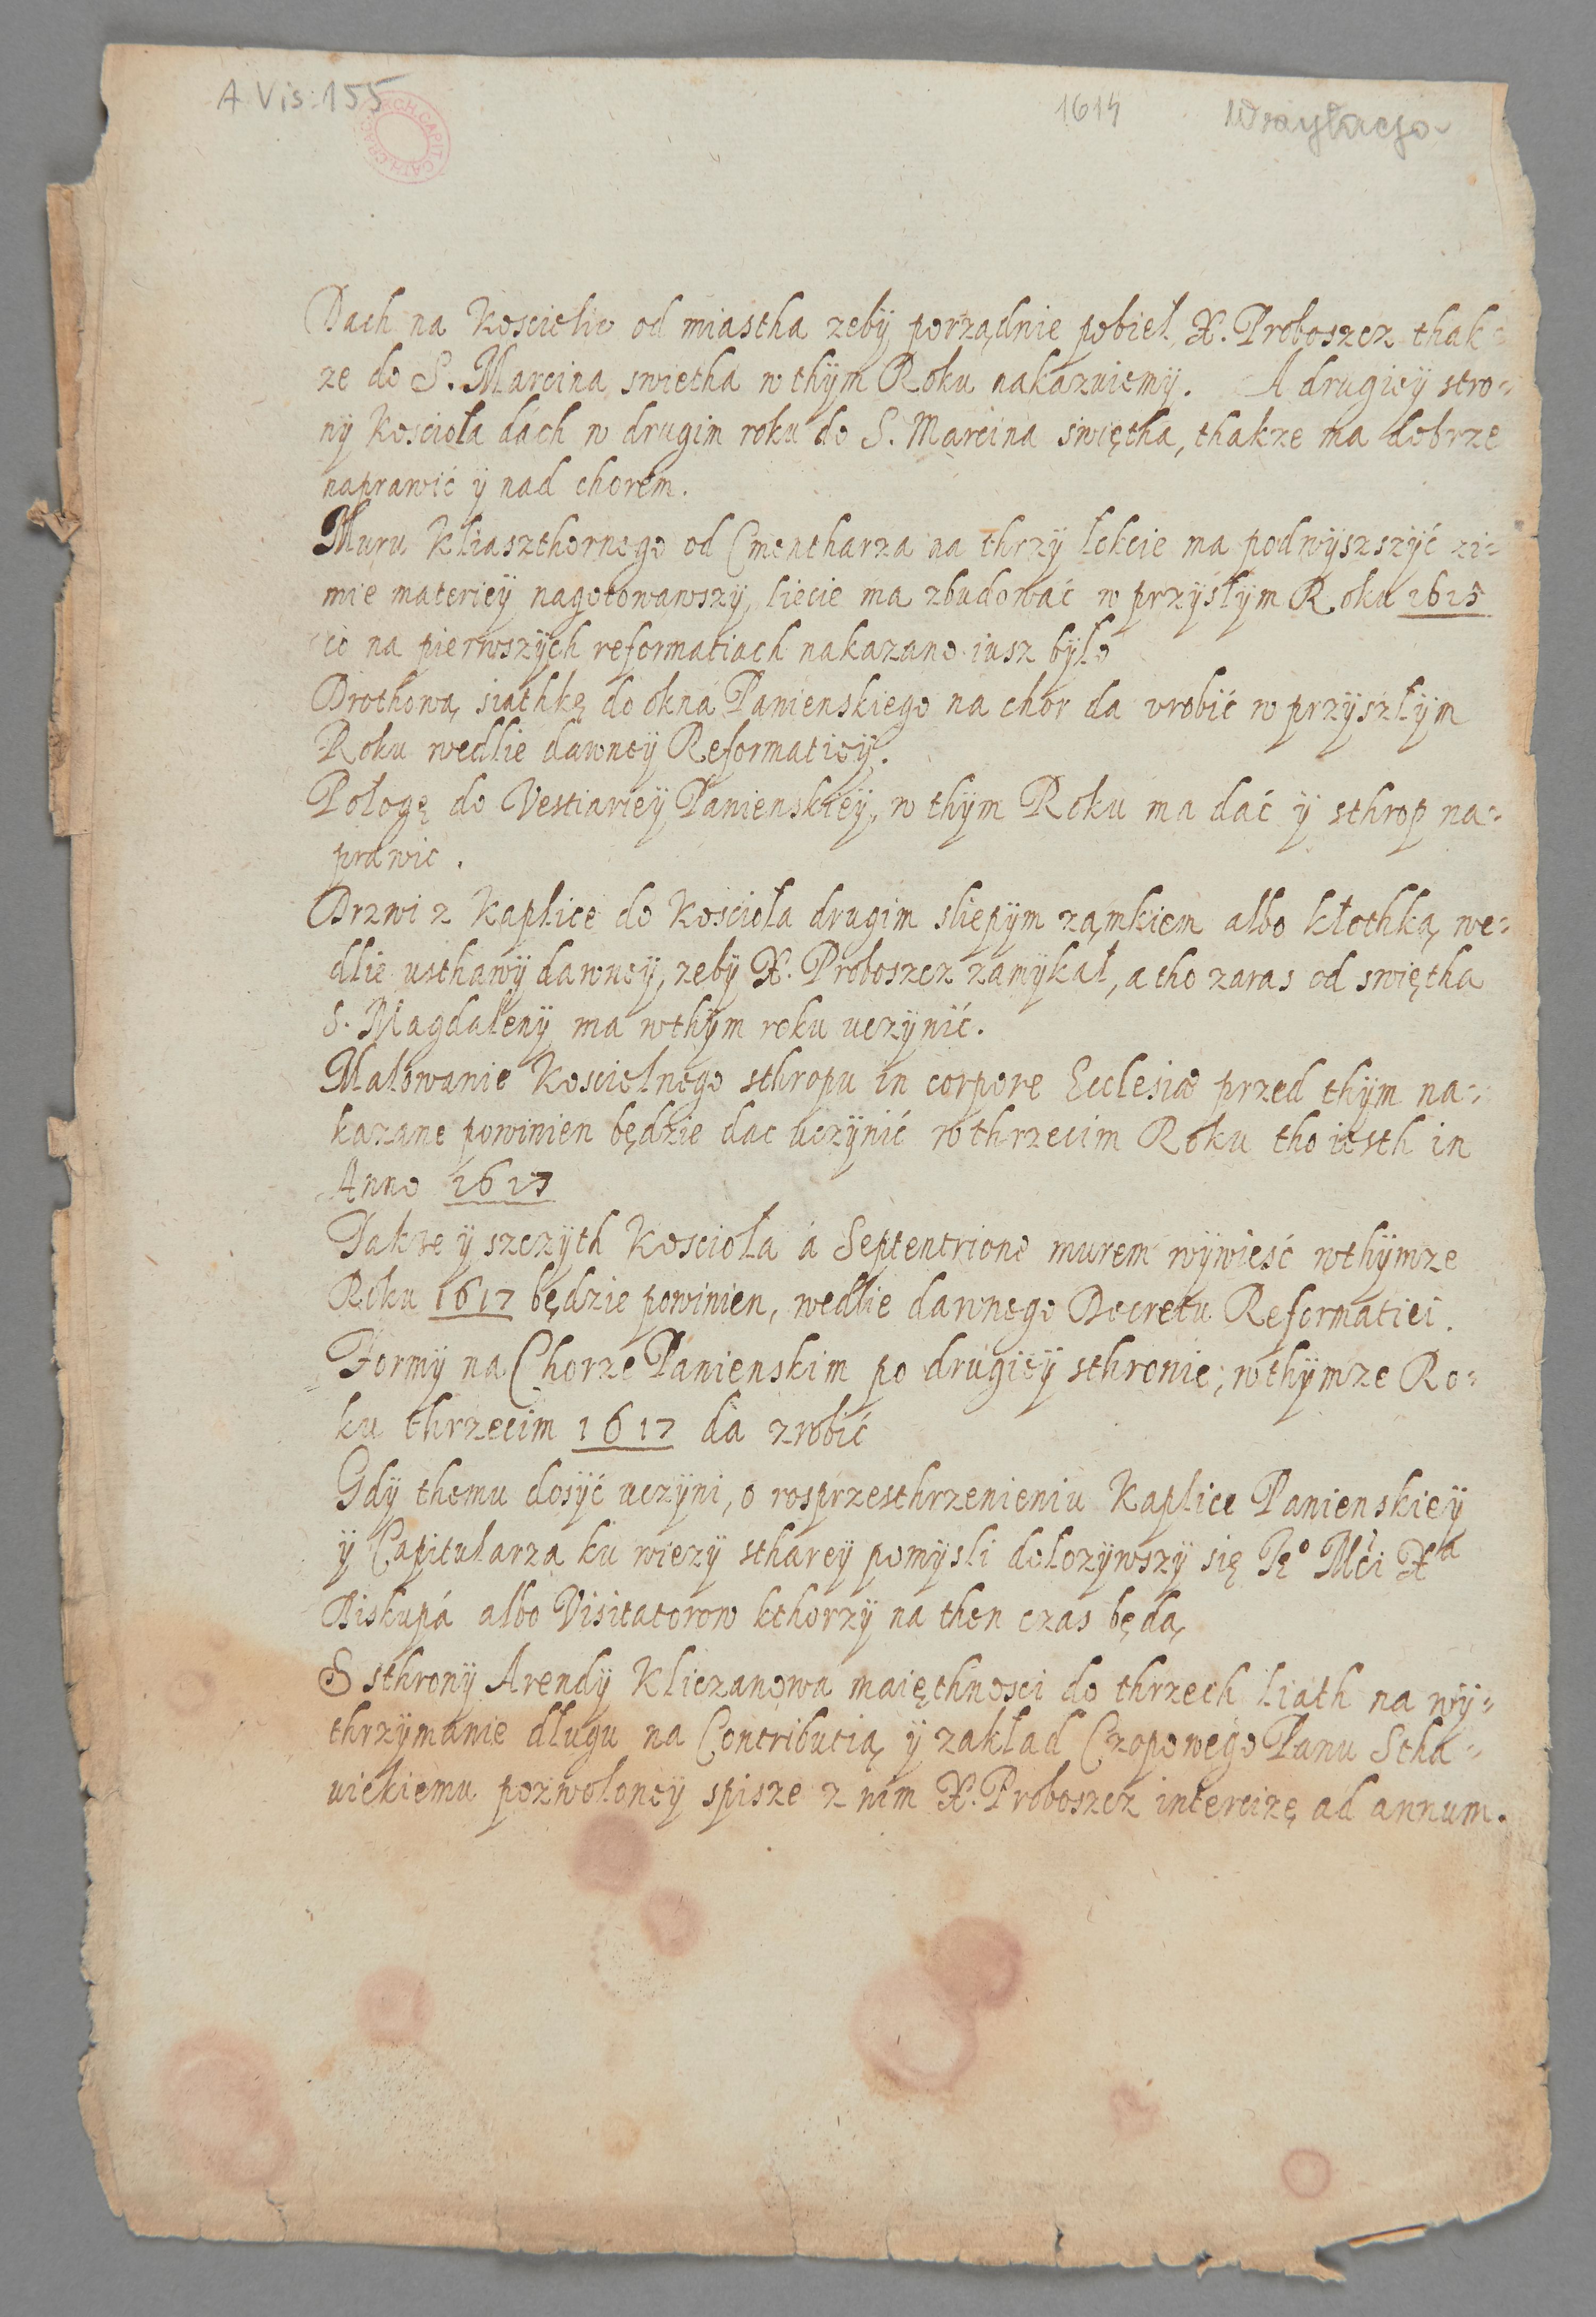 A Vis: 155
1614
Wizytacja
Dach na Kosciele od miastha zeby porządnie pobieł X. Proboszcz thak=
ze do S. Marcina swietha w thÿm Roku nakazuiemÿ. A drugieÿ stro=
nÿ Kościoła dách w drugim roku do S. Marcina swiętha, thakze ma dobrze
naprawić ÿ nad chorem.
Muru Kliaszthornego od Cmentharza na thrzÿ łokcie ma podwÿszszÿć zi=
mie materieÿ nagotowawszÿ, liecie ma zbudować w przÿsłÿm Roku 1615
co na pierwszÿch reformatiach nakazano iusz bÿło
Drothową siathkę do okná Panienskiego na chor da vrobić w przÿszłÿm
Roku wedlie dawneÿ Reformatieÿ.
Pologę do Vestiarieÿ Panienskieÿ, w thÿm Roku ma dać ÿ sthrop na=
prawic.
Drzwi z Kaplice do Kościoła drugim sliepÿm zamkiem albo kłothką we=
dlie usthawÿ dawneÿ, zebÿ X. Proboszcz zamÿkał, a tho zaras od swiętha
S. Magdalenÿ ma wthÿm roku uczÿnić.
Malowanie Koscielnego sthropu in corpore Ecclesiæ przed thÿm na=
kazane powinien będzie dac uczÿnić w thrzecim Roku tho iesth in
Anno 1617
Takze ÿ szczÿth Kościoła á Septentrione murem wÿwieść wthÿmze
Roku 1617 będzie powinien, wedlie dawnego Decretu Reformatiei.
Formÿ na Chorze Panienskim po drugieÿ sthronie, wthÿmze Ro=
ku thrzecim 1617 da zrobić
Gdÿ themu dosÿć uczÿni, o rosprzesthrzenieniu Kaplice Panienskieÿ
ÿ Capitularza ku wiezÿ stharey pomÿsli dolozÿwszÿ się Je° Mći Xa
Biskupá albo Visitatorow kthorzÿ na then czas będą
S sthronÿ Arendÿ Kliczanowa maięthnosci do thrzech liath na wÿ=
thrzÿmanie długu na Contributią ÿ zakład Czopowego Panu Stha=
uiekiemu pozwoloneÿ spisze z nim X. Proboszcz intercizę ad annum.